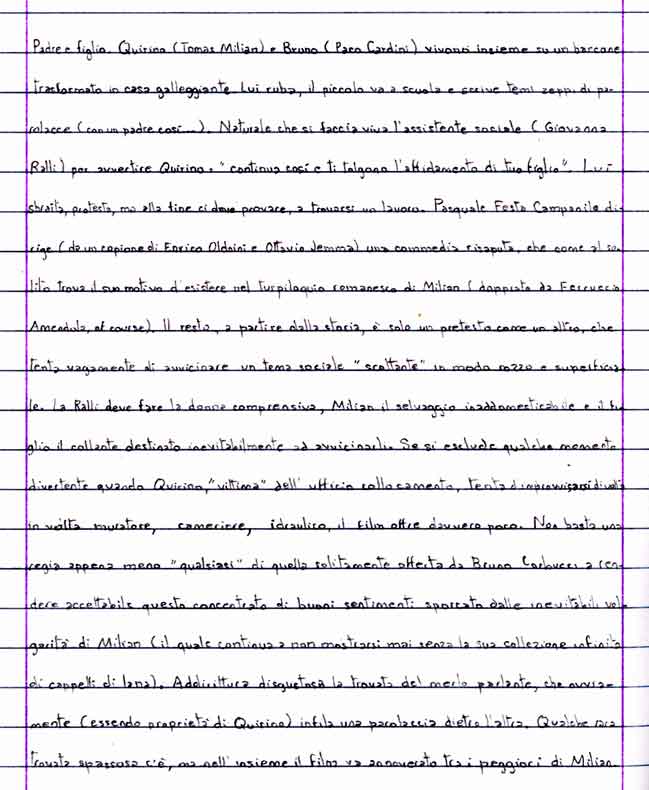 Padre e figlio. Quirino (Tomas Milian) e Bruno (Paco Cardini) vivono insieme su un barcone
trasformato in casa galleggiante. Lui ruba, il piccolo va a scuola e scrive temi zeppi di pa-
rolacce (con un padre così...). Naturale che si faccia viva l'assistente sociale (Giovanna
Ralli) per avvertire Quirino: "continua così e ti tolgono l'affidamento di tuo figlio". Lui
sbraita, protesta, ma alla fine ci deve provare, a trovarsi un lavoro. Pasquale Festa Campanile di-
rige (da un copione di Enrico Oldoini e Ottavio Jemma) una commedia risaputa, che come al so-
lito trova il suo motivo d'esistere nel turpiloquio romanesco di Milian (doppiato da Ferruccio
Amendola, of course). Il resto, a partire dalla storia, è solo un pretesto come un altro, che
tenta vagamente di avvicinare un tema sociale "scottante" in modo rozzo e superficia-
le. La Ralli deve fare la donna comprensiva, Milian il selvaggio inaddomesticabile e il fi-
glio il collante destinato inevitabilmente ad avvicinarli. Se si esclude qualche momento
divertente quando Quirino, "vittima" dell'ufficio collocamento, tenta d'improvvisarsi di volta
in volta muratore, cameriere, idraulico, il film offre davvero poco. Non basta una
regia appena meno "qualsiasi" di quella solitamente offerta da Bruno Corbucci a ren-
dere accettabile questo concentrato di buoni sentimenti sporcato dalle inevitabili vol-
garità di Milian (il quale continua a non mostrarsi mai senza la sua collezione infinita
di cappelli di lana). Addirittura disgustosa la trovata del merlo parlante, che ovvia-
mente (essendo proprietà di Quirino) infila una parolaccia dietro l'altra. Qualche rara
trovata spassosa c'è, ma nell'insieme il film va annoverato tra i peggiori di Milian.